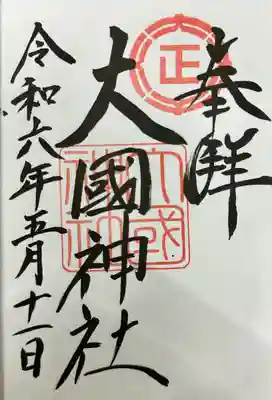 奉拝
正
大國神社
大國神社
令和六年五月十一日